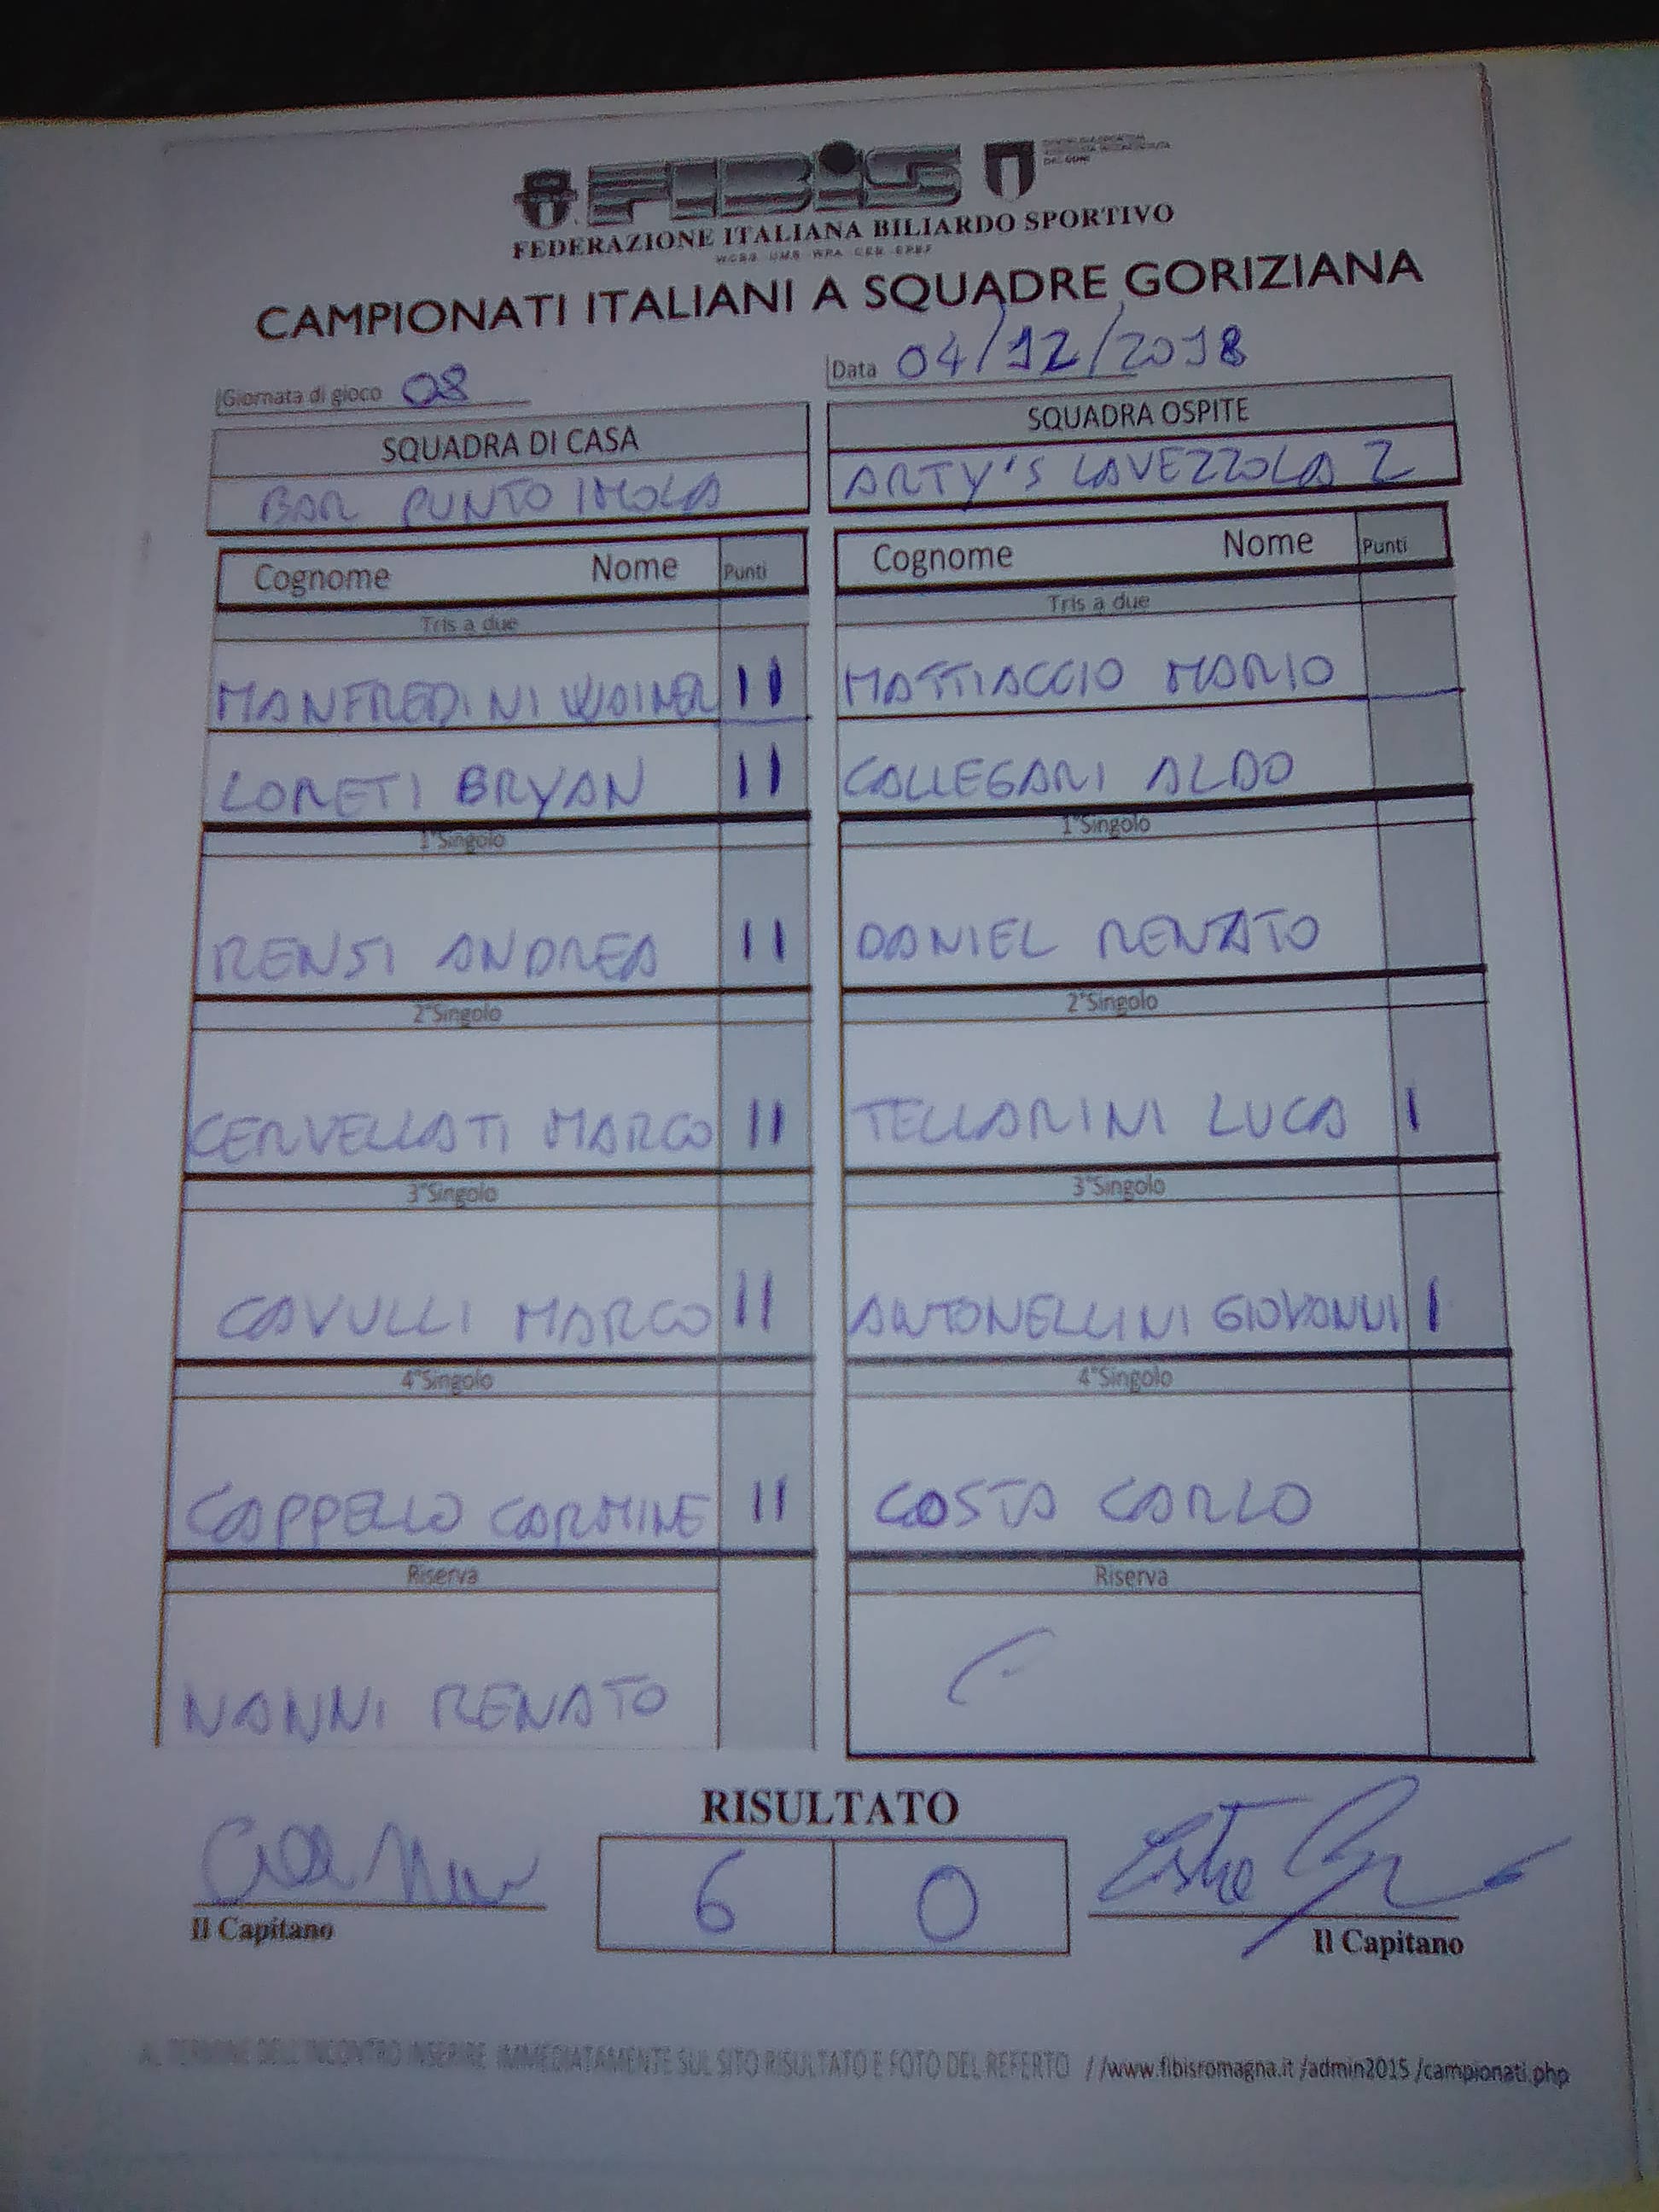 FIBiS
FEDERAZIONE ITALIANA BILIARDO SPORTIVO
WCBS UMB WPA CEB EPBF
CAMPIONATI ITALIANI A SQUADRE GORIZIANA
Giornata di gioco 08
Data 04/12/2018
SQUADRA DI CASA
SQUADRA OSPITE
BAR PUNTO IMOLA
ARTY'S LAVEZZOLA 2
Cognome Nome Punti
Cognome Nome Punti
Tris a due
Tris a due
MANFREDINI WAINER II
MATTIACCIO MARIO
LORETI BRYAN II
CALLEGARI ALDO
1°Singolo
1°Singolo
RENSI ANDREA II
DANIEL RENATO
2°Singolo
2°Singolo
CERVELLATI MARCO II
TELLARINI LUCA I
3°Singolo
3°Singolo
CAVULLI MARCO II
ANTONELLINI GIOVANNI I
4°Singolo
4°Singolo
CAPPELLO CARMINE II
COSTA CARLO
Riserva
Riserva
NANNI RENATO
RISULTATO
6 0
Il Capitano
Il Capitano
AL TERMINE DELL'INCONTRO INSERIRE IMMEDIATAMENTE SUL SITO RISULTATO E FOTO DEL REFERTO //www.fibisromagna.it /admin2015 /campionati.php